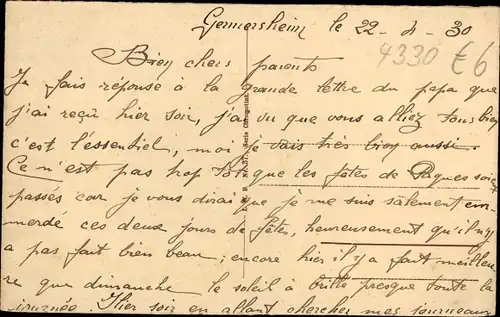 Germersheim le 22-4-30
4330 €6
Bien chers parents
Je fais réponse à la grande lettre du papa que
j'ai reçu hier soir, j'ai vu que vous alliez tous bien
c'est l'essentiel, moi je vais très bien aussi.
Ce n'est pas trop tôt que les fêtes de Pâques soient
passées car je vous dirai que je me suis salement em
merdé ces deux jours de fêtes, heureusement qu'il n'y
a pas fait bien beau; encore hier il y a fait meilleu
re que dimanche le soleil à brille presque toute la
journée. Hier soir en allant chercher mes journeaux